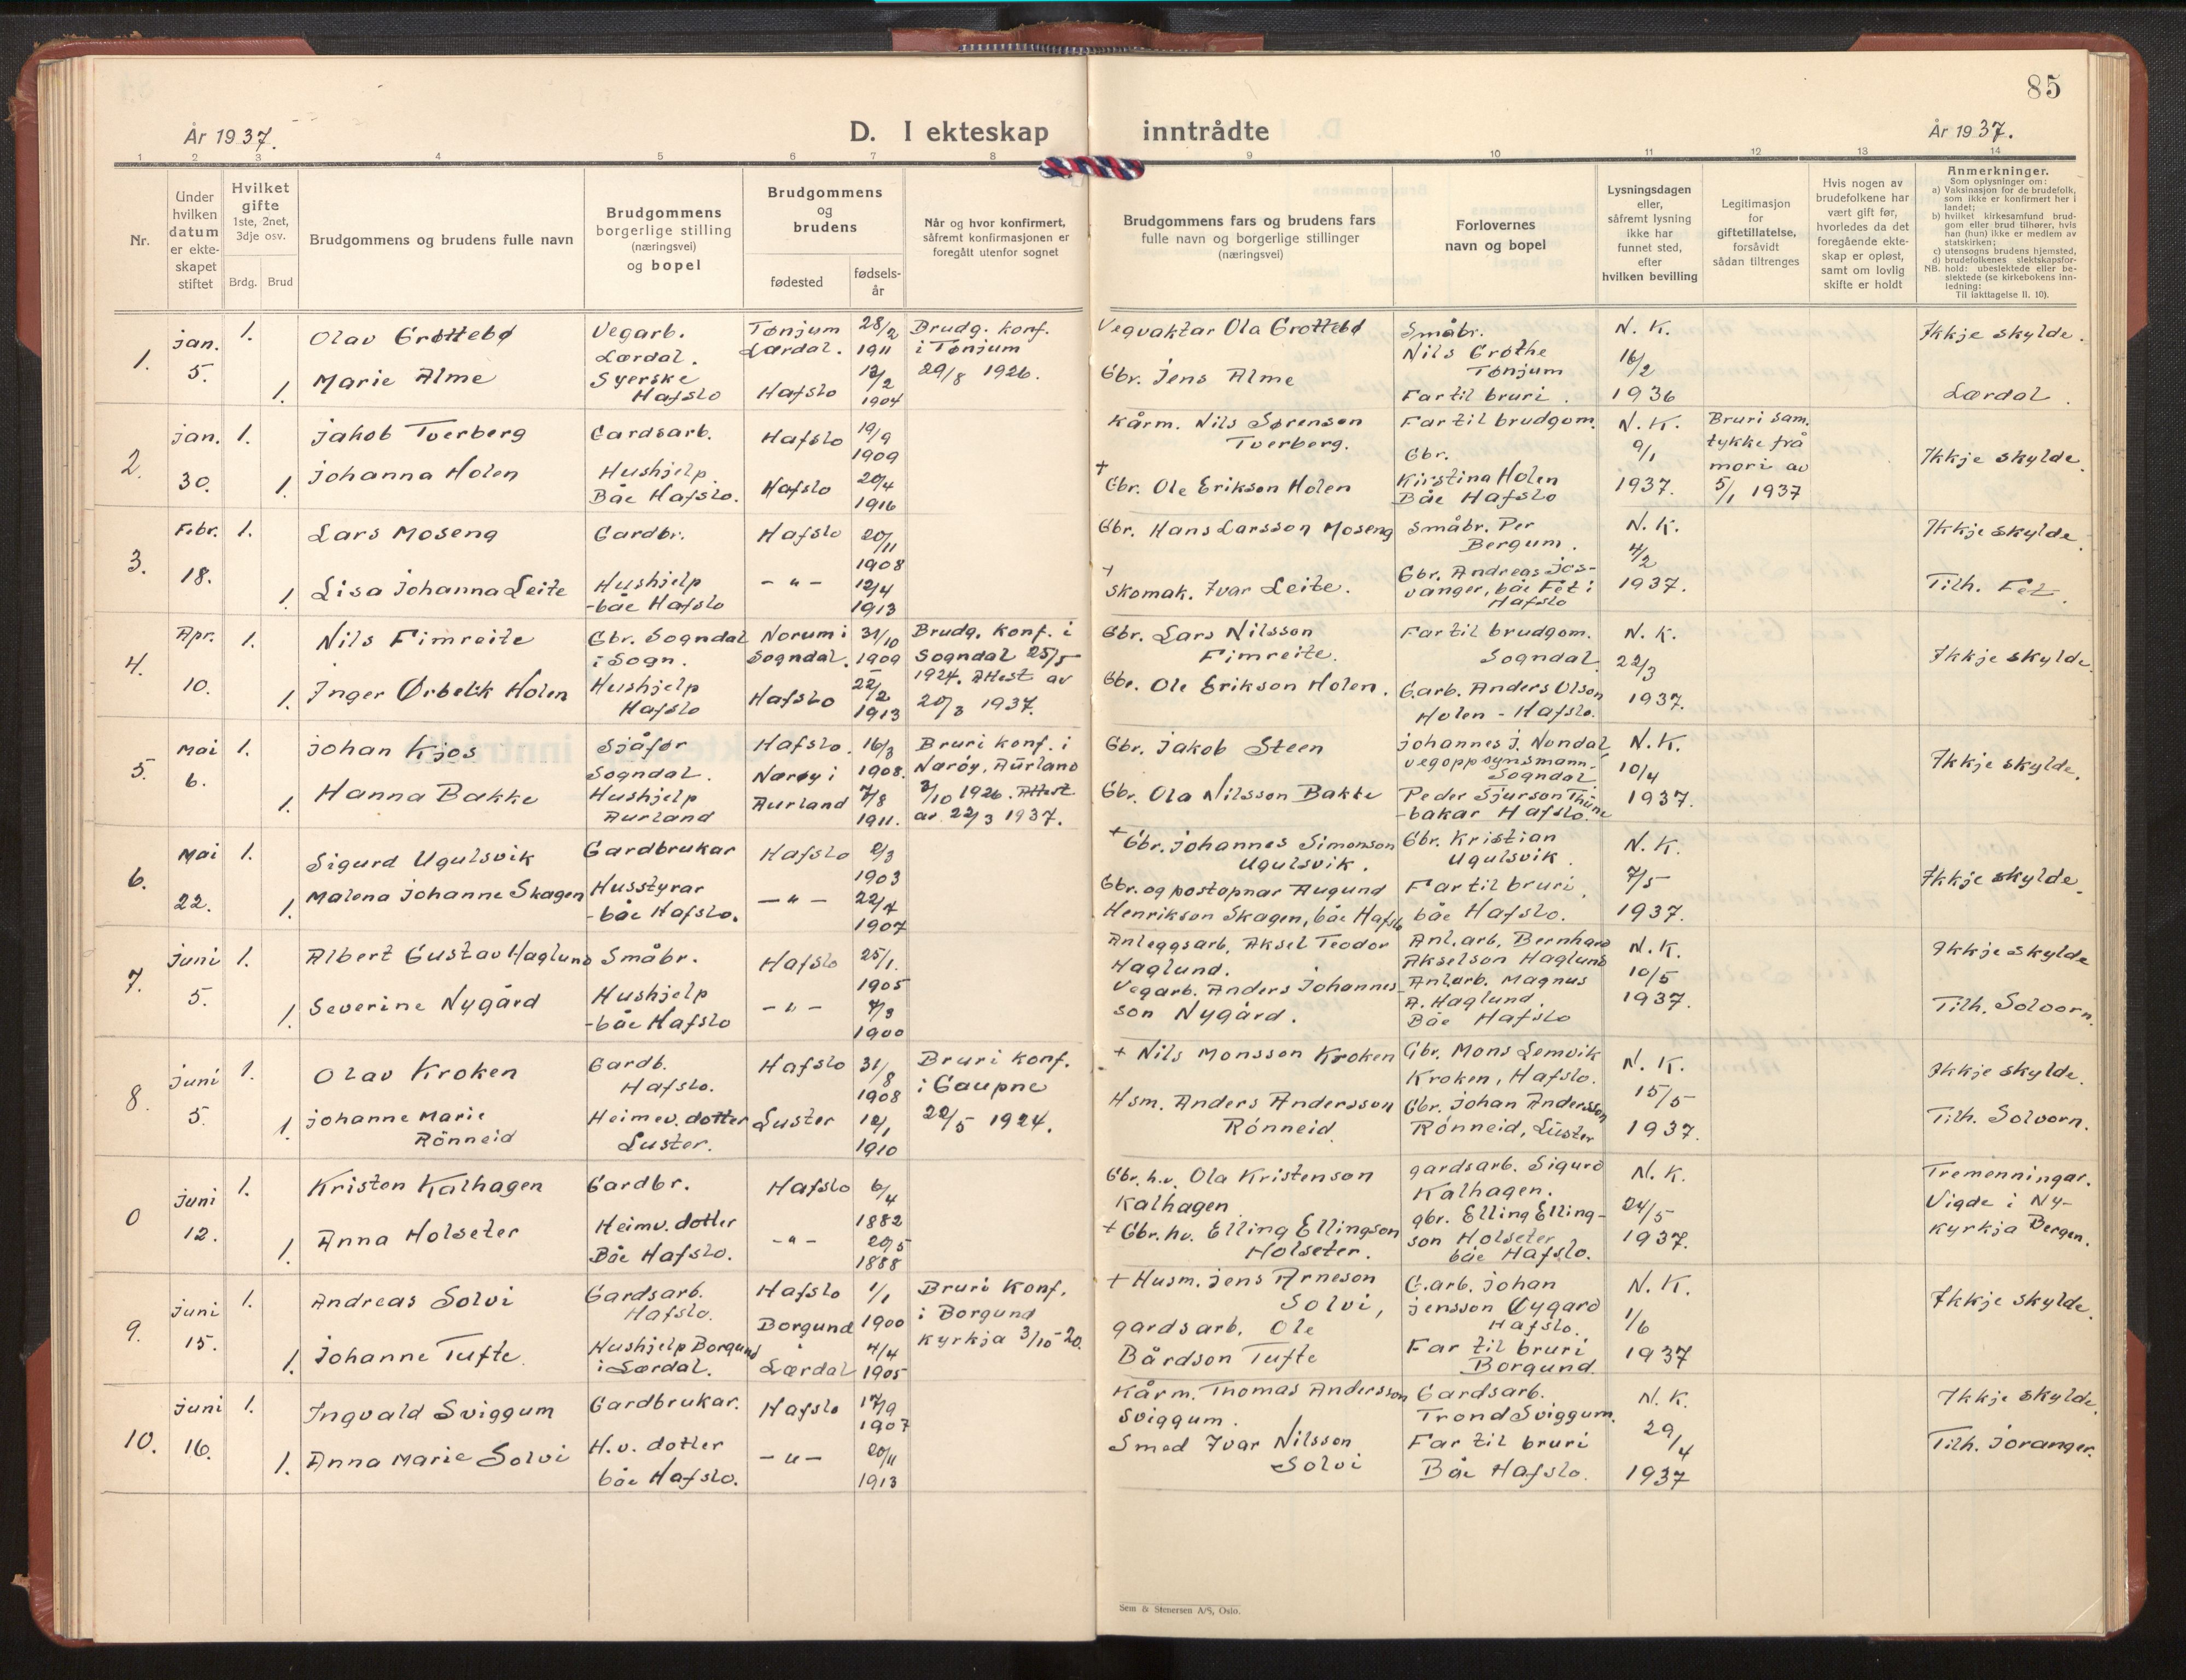 85
År 1937.
D. I ekteskap inntrådte
År 1937.
1 2 3 4 5 6 7 8 9 10 11 12 13 14
Nr.
Under hvilken datum er ekte-skapet stiftet
Hvilket gifte
1ste, 2net, 3dje osv.
Brdg. Brud
Brudgommens og brudens fulle navn
Brudgommens borgerlige stilling (næringsvei) og bopel
Brudgommens og brudens
fødested
fødsels-år
Når og hvor konfirmert, såfremt konfirmasjonen er foregått utenfor sognet
Brudgommens fars og brudens fars fulle navn og borgerlige stillinger (næringsvei)
Forlovernes navn og bopel
Lysningsdagen eller, såfremt lysning ikke har funnet sted, efter hvilken bevilling
Legitimasjon for giftetillatelse, forsåvidt sådan tiltrenges
Hvis nogen av brudefolkene har vært gift før, hvorledes da det foregående ekte-skap er opløst, samt om lovlig skifte er holdt
Anmerkninger.
Som oplysninger om:
a) Vaksinasjon for de brudefolk, som ikke er konfirmert her i landet;
b) hvilket kirkesamfund brud-gom eller brud tilhører, hvis han (hun) ikke er medlem av statskirken;
c) utensogns brudens hjemsted,
d) brudefolkenes slektskapsfor-hold: ubeslektede eller be-slektede (se kirkebokens inn-ledning:
NB. Til iakttagelse II. 10).
1. Jan. 5. 1. Olav Grøttebø Vegarb. Lærdal. Tønjum Lærdal. 28/2 1911 Brudg. konf. i Tønjum 29/8 1926. Vegvaktar Ola Grøttebø Småbr. Nils Grøthe Tønjum N.K. 16/2 1936 Ikkje skylde.
1. Marie Alme Syerske Hafslo Hafslo 12/2 1904 Gbr. Jens Alme Far til bruri. Lærdal.
2. Jan. 30. 1. Jakob Tverberg Gardsarb. Hafslo 19/9 1909 Kårm. Nils Sørensen Tverberg. Far til brudgom. N.K. 9/1 1937. Bruri sam.tykke frå mori av 5/1 1937 Ikkje skylde.
1. Johanna Holen Hushjelp Båe Hafslo. Hafslo 20/4 1916 + Gbr. Ole Erikson Holen Gbr. Kirstina Holen Båe Hafslo
3. Febr. 18. 1. Lars Moseng Gardbr. Hafslo 20/11 1908 Gbr. Hans Larsson Moseng Småbr. Per Bergum. N.K. 4/2 1937. Ikkje skylde.
1. Lisa Johanna Leite Hushjelp -båe Hafslo - " - 12/4 1913 + Skomak. Ivar Leite. Gbr. Andreas Jos-vanger, båe Fet i Hafslo Tilh. Fet.
4. Apr. 10. 1. Nils Fimreite Gbr. Sogndal i Sogn. Norum i Sogndal. 31/10 1909 Brudg. konf. i Sogndal 25/5 1924. Attest av 20/3 1937. Gbr. Lars Nilsson Fimreite. Far til brudgom. Sogndal N.K. 22/3 1937. Ikkje skylde.
1. Inger Ørbekk Holen Hushjelp Hafslo Hafslo 22/2 1913 Gbr. Ole Erikson Holen. G.arb. Anders Olson Holen - Hafslo.
5. Mai 6. 1. Johan Kjos Sjåfør Sogndal. Hafslo. 16/3 1908. Bruri konf. i Nærøy, Aurland 3/10 1926. Attest av 22/3 1937. Gbr. Jakob Steen Johannes J. Nondal vegoppsynsmann. Sogndal N.K. 10/4 1937. Ikkje skylde.
1. Hanna Bakke Hushjelp Aurland Nærøy i Aurland 7/8 1911. Gbr. Ola Nilsson Bakke Peder Sjurson Thüne -bakar Hafslo.
6. Mai 22. 1. Sigurd Ugulsvik Gardbrukar Hafslo 2/3 1903 + Gbr. Johannes Simonson Ugulsvik. Gbr. Kristian Ugulsvik. N.K. 7/5 1937. Ikkje skylde.
1. Malena Johanne Skagen Husstyrar -båe Hafslo. - " - 22/7 1907 Gbr. og postopnar Augund Henrikson Skagen, båe Hafslo Far til bruri, båe Hafslo.
7. Juni 5. 1. Albert Gustav Haglund Småbr. Hafslo 25/1. 1905 Anleggsarb. Aksel Teodor Haglund. Anl.arb. Bernhard Akselson Haglund N.K. 10/5 1937. Ikkje skylde
1. Severine Nygård Hushjelp -båe Hafslo - " - 7/3 1900 Vegarb. Anders Johannes-son Nygård. Anl.arb. Magnus A. Haglund. Båe Hafslo Tilh. Solvorn.
8. Juni 5. 1. Olav Kroken Gardb. Hafslo. Hafslo 31/8 1908 Bruri konf. i Gaupne 22/5 1924. + Nils Monsson Kroken Gbr. Mons Lemvik Kroken, Hafslo. N.K. 15/5 1937. Ikkje skylde.
1. Johanne Marie Rönneid Heimev. dotter Luster. Luster 12/1 1910 Hsm. Anders Andersson Rönneid Gbr. Johan Andersson Rönneid, Lüster Tilh. Solvorn.
0 Juni 12. 1. Kristen Kalhagen Gardbr. Hafslo 6/4 1882 Gbr. h.v. Ola Kristenson Kalhagen gardsarb. Sigurd Kalhagen. N.K. 24/5 1937. Tremenningar. Vigde i Ny-kyrkja Bergen.
1. Anna Holseter Heimv. dotter Båe Hafslo. - " - 20/5 1888 + Gbr. hv. Elling Ellingson Holseter. gbr. Elling Elling-son Holseter båe Hafslo.
9. Juni 15. 1. Andreas Solvi Gardsarb. Hafslo. Hafslo 1/1 1900 Bruri Konf. i Borgund kyrkja 3/10-20. + Husm. Jens Arneson Solvi, G.arb. Johan Jensson Øygard Hafslo. N.K. 1/6 1937 Ikkje skylde.
1. Johanne Tufte. Hushjelp Borgund i Lærdal. Borgund Lærdal 4/4 1905 gardsarb. Ole Bårdson Tufte Far til bruri Borgund.
10. Juni 16. 1. Ingvald Sviggum Gardbrukar. Hafslo 17/9 1907 Kårm. Thomas Andersson Sviggum. Gardsarb. Trond Sviggum. N.K. 29/4 1937 Ikkje skylde.
1. Anna Marie Solvi H.v. dotter båe Hafslo. - " - 20/11 1913 Smed Ivar Nilsson Solvi Far til bruri Båe Hafslo. Tilh. Joranger.
Sem & Stenersen A/S, Oslo.